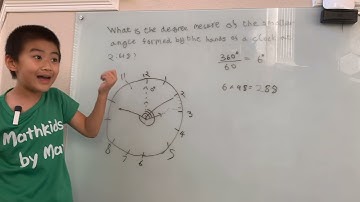 What is the degree measure of the smaller
angle formed by the hands of a clock at
360°
60
= 6°
11
12
1
2
3
4
5
6
7
8
Mathkids
by Ma